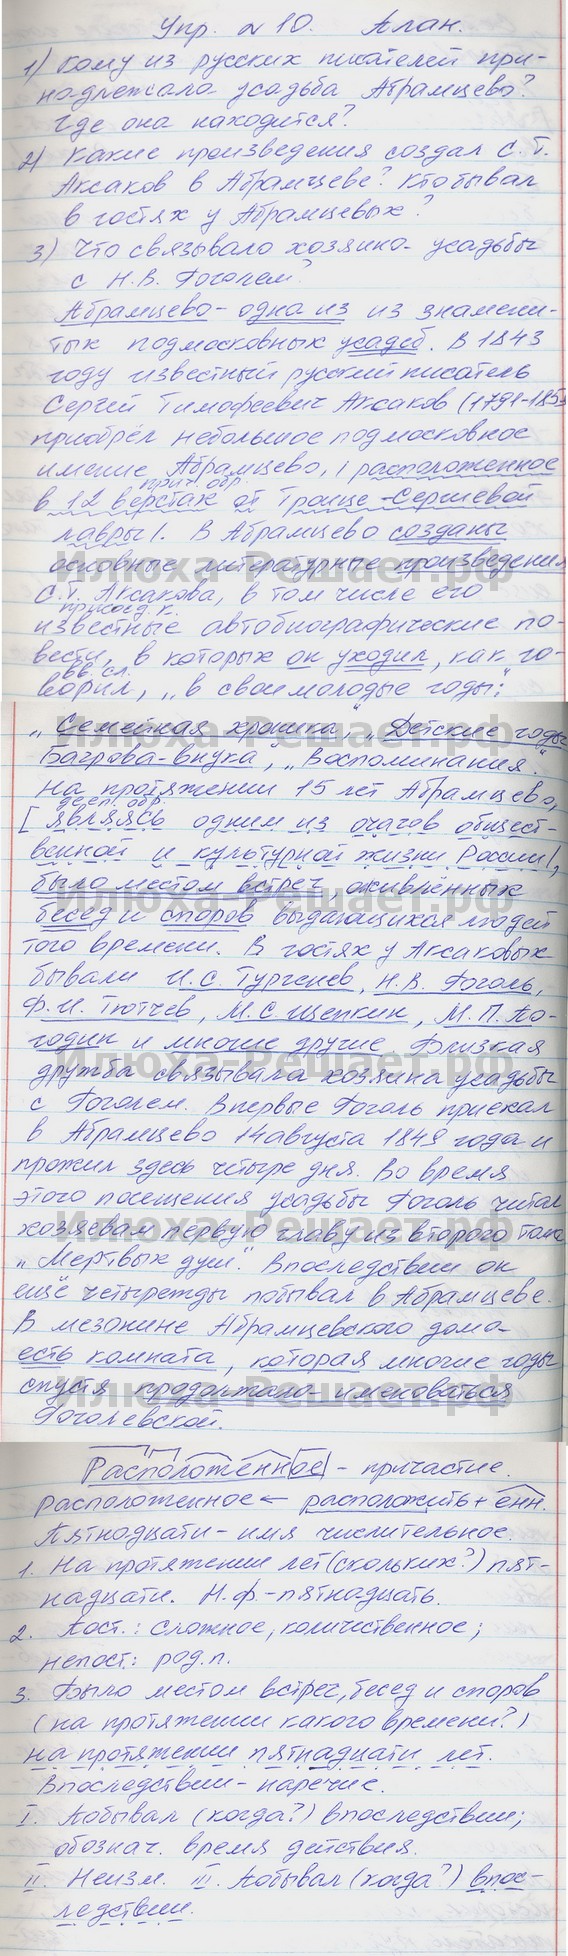 Упр. № 10. План.
1) Кому из русских писателей при-
надлежала усадьба Абрамцево?
Где она находится?
2) Какие произведения создал С.Т.
Аксаков в Абрамцеве? Кто бывал
в гостях у Абрамцевых?
3) Что связывало хозяина усадьбы
с Н.В. Гоголем?
Абрамцево - одна из из знамени-
тых подмосковных усадеб. В 1843
году известный русский писатель
Сергей Тимофеевич Аксаков (1791-185
приобрёл небольшое подмосковное
имение Абрамцево, | расположенное
прич. обр.
в 12 верстах от Троице-Сергиевой
лавры|. В Абрамцево созданы
основные литературные произведения
С.Т. Аксакова, в том числе его
присоед. к.
известные автобиографические по-
вести, в которых он уходил, как го-
вв. сл.
ворил, „в свои молодые годы":
„Семейная хроника", „Детские годы
Багрова-внука", „Воспоминания".
На протяжении 15 лет Абрамцево,
дееп. обр.
[являясь одним из очагов общест-
венной и культурной жизни России|,
было местом встреч, оживлённых
бесед и споров выдающихся людей
того времени. В гостях у Аксаковых
бывали И.С. Тургенев, Н.В. Гоголь,
Ф.И. Тютчев, М.С. Щепкин, М.П. По-
годин и многие другие. Близкая
дружба связывала хозяина усадьбы
с Гоголем. Впервые Гоголь приехал
в Абрамцево 14 августа 1849 года и
прожил здесь четыре дня. Во время
этого посещения усадьбы Гоголь читал
хозяевам первую главу из второго тома
„Мертвых душ". Впоследствии он
ещё четырежды побывал в Абрамцеве.
В мезонине Абрамцевского дома-
есть комната, которая многие годы
спустя продолжала именоваться
Гоголевской.
Расположенное - причастие.
расположенное ← расположить + енн.
Пятнадцати - имя числительное.
1. На протяжении лет (скольких?) пят-
надцати. Н.ф. - пятнадцать.
2. Пост.: сложное, количественное;
непост.: род.п.
3. Было местом встреч, бесед и споров
(на протяжении какого времени?)
на протяжении пятнадцати лет.
Впоследствии - наречие.
I. Побывал (когда?) впоследствии;
обознач. время действия.
II. Неизм. III. Побывал (когда?) впос-
ледствии.
Илюха-Решает.рф
Илюха-Решает.рф
Илюха-Решает.рф
Илюха-Решает.рф
Илюха-Решает.рф